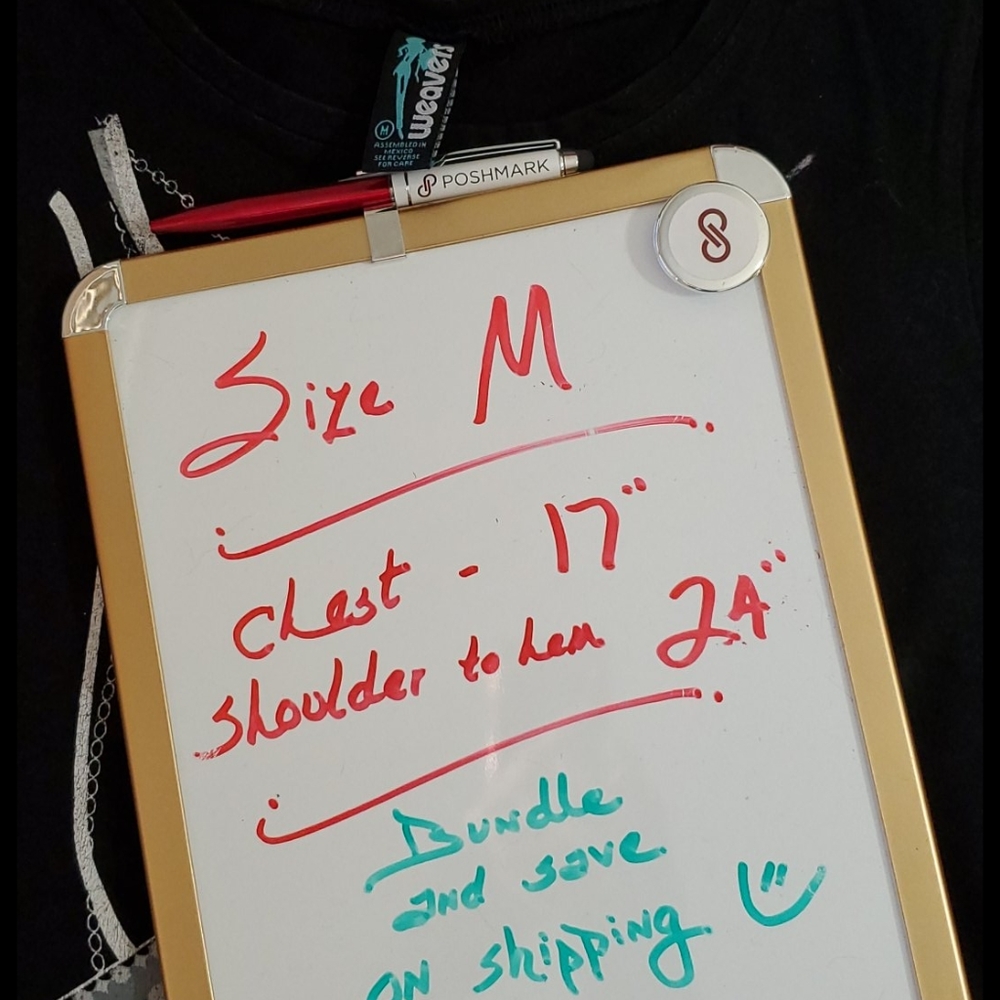 weavers
M
ASSEMBLED IN
MEXICO
SEE REVERSE
FOR CARE
POSHMARK
Size M
chest - 17"
shoulder to hem 24"
Bundle
and save
on shipping.